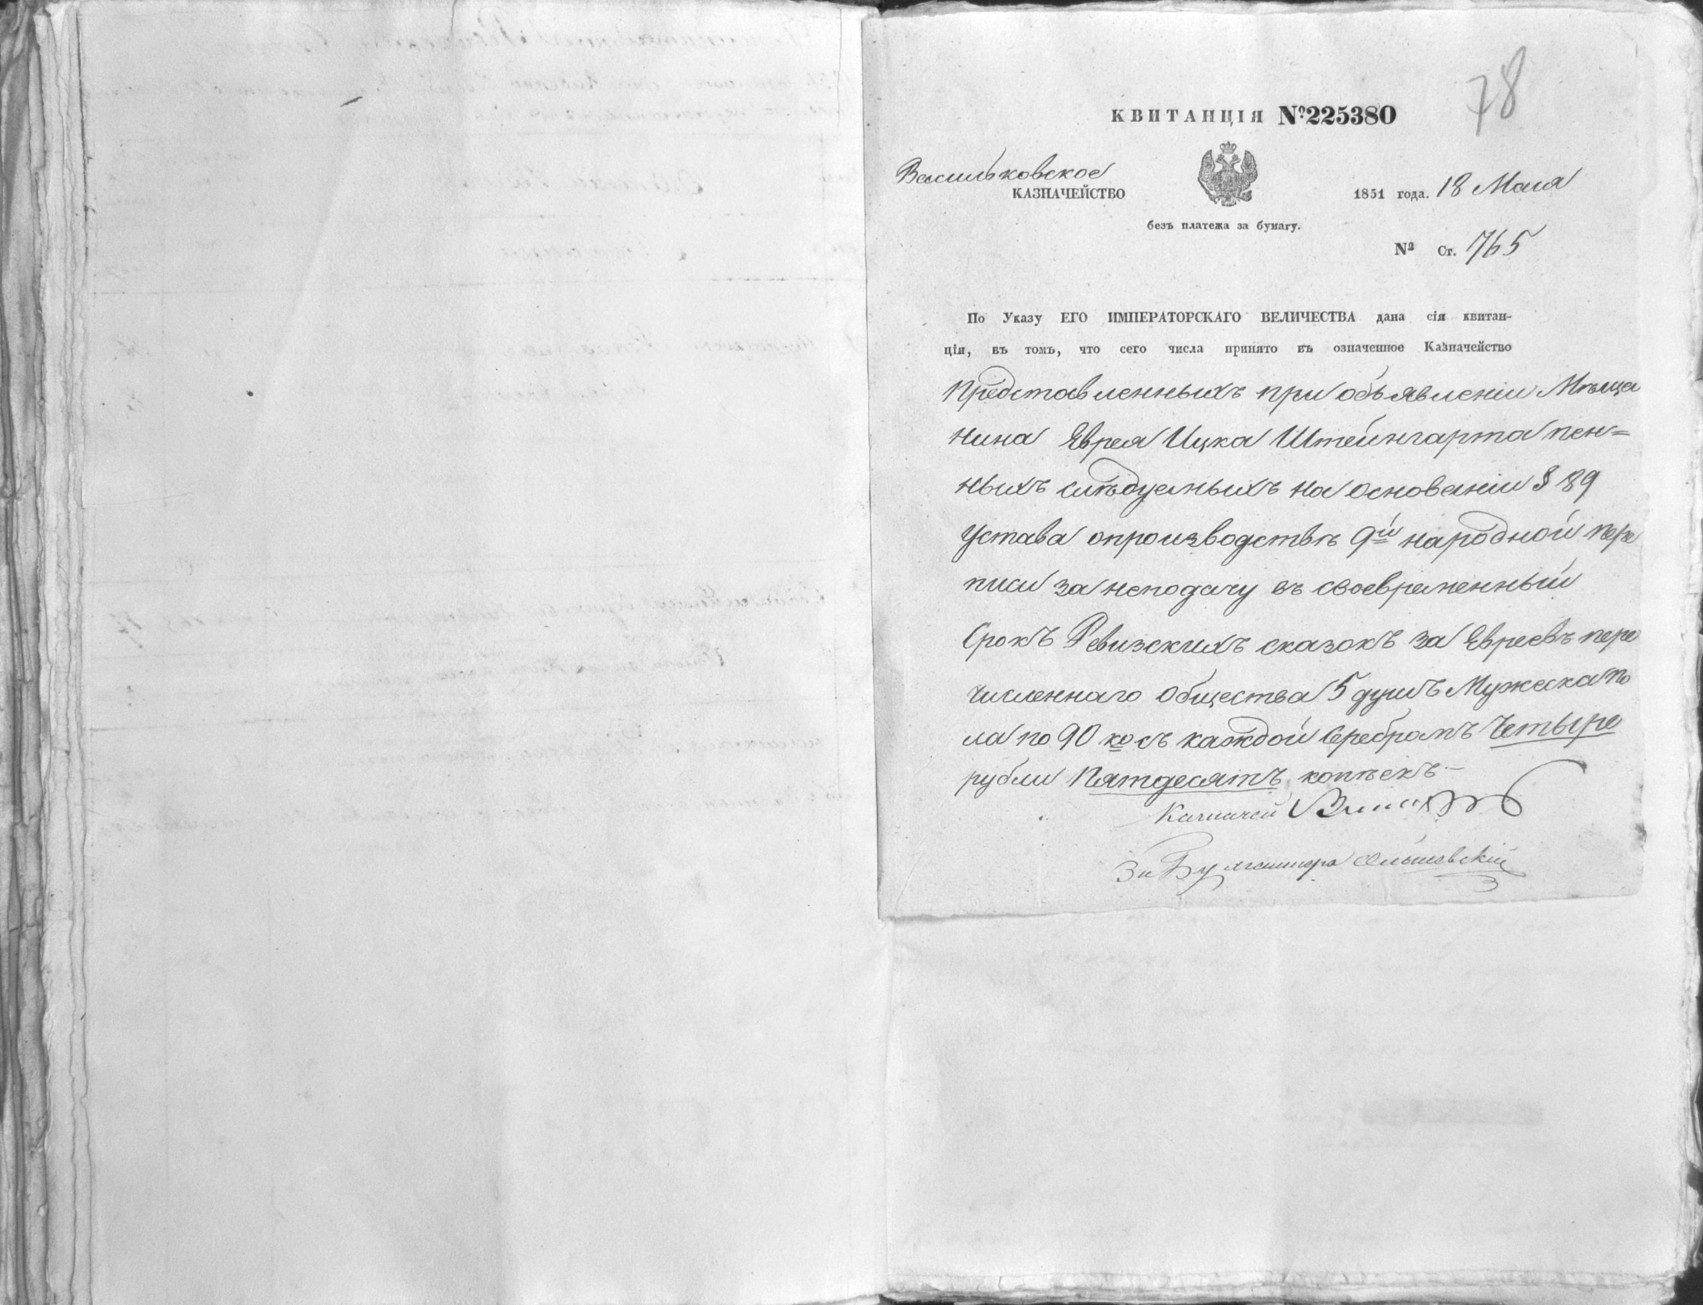 78
КВИТАНЦІЯ №225380
Васильковское
КАЗНАЧЕЙСТВО
1851 года. 18 Мая
безъ платежа за бумагу.
№ Ст. 765
По Указу ЕГО ИМПЕРАТОРСКАГО ВЕЛИЧЕСТВА дана сія квитан-
ція, въ томъ, что сего числа принято въ означенное Казначейство
Представленныхъ при объявленіи Мѣща
нина Еврея Ицка Штейнгарта пен=
ныхъ слѣдуемыхъ на основаніи § 89
Устава о производствѣ 9й народной пере
писи за неподачу въ своевременный
Срокъ Ревизскихъ сказокъ за Евреевъ пере
численнаго общества 5 душъ Мужеска по
ла по 90 ко съ каждой Серебромъ Четыре
рубли Пятдесятъ копѣекъ
Казначей
За Бухгалтера Ольшевскій